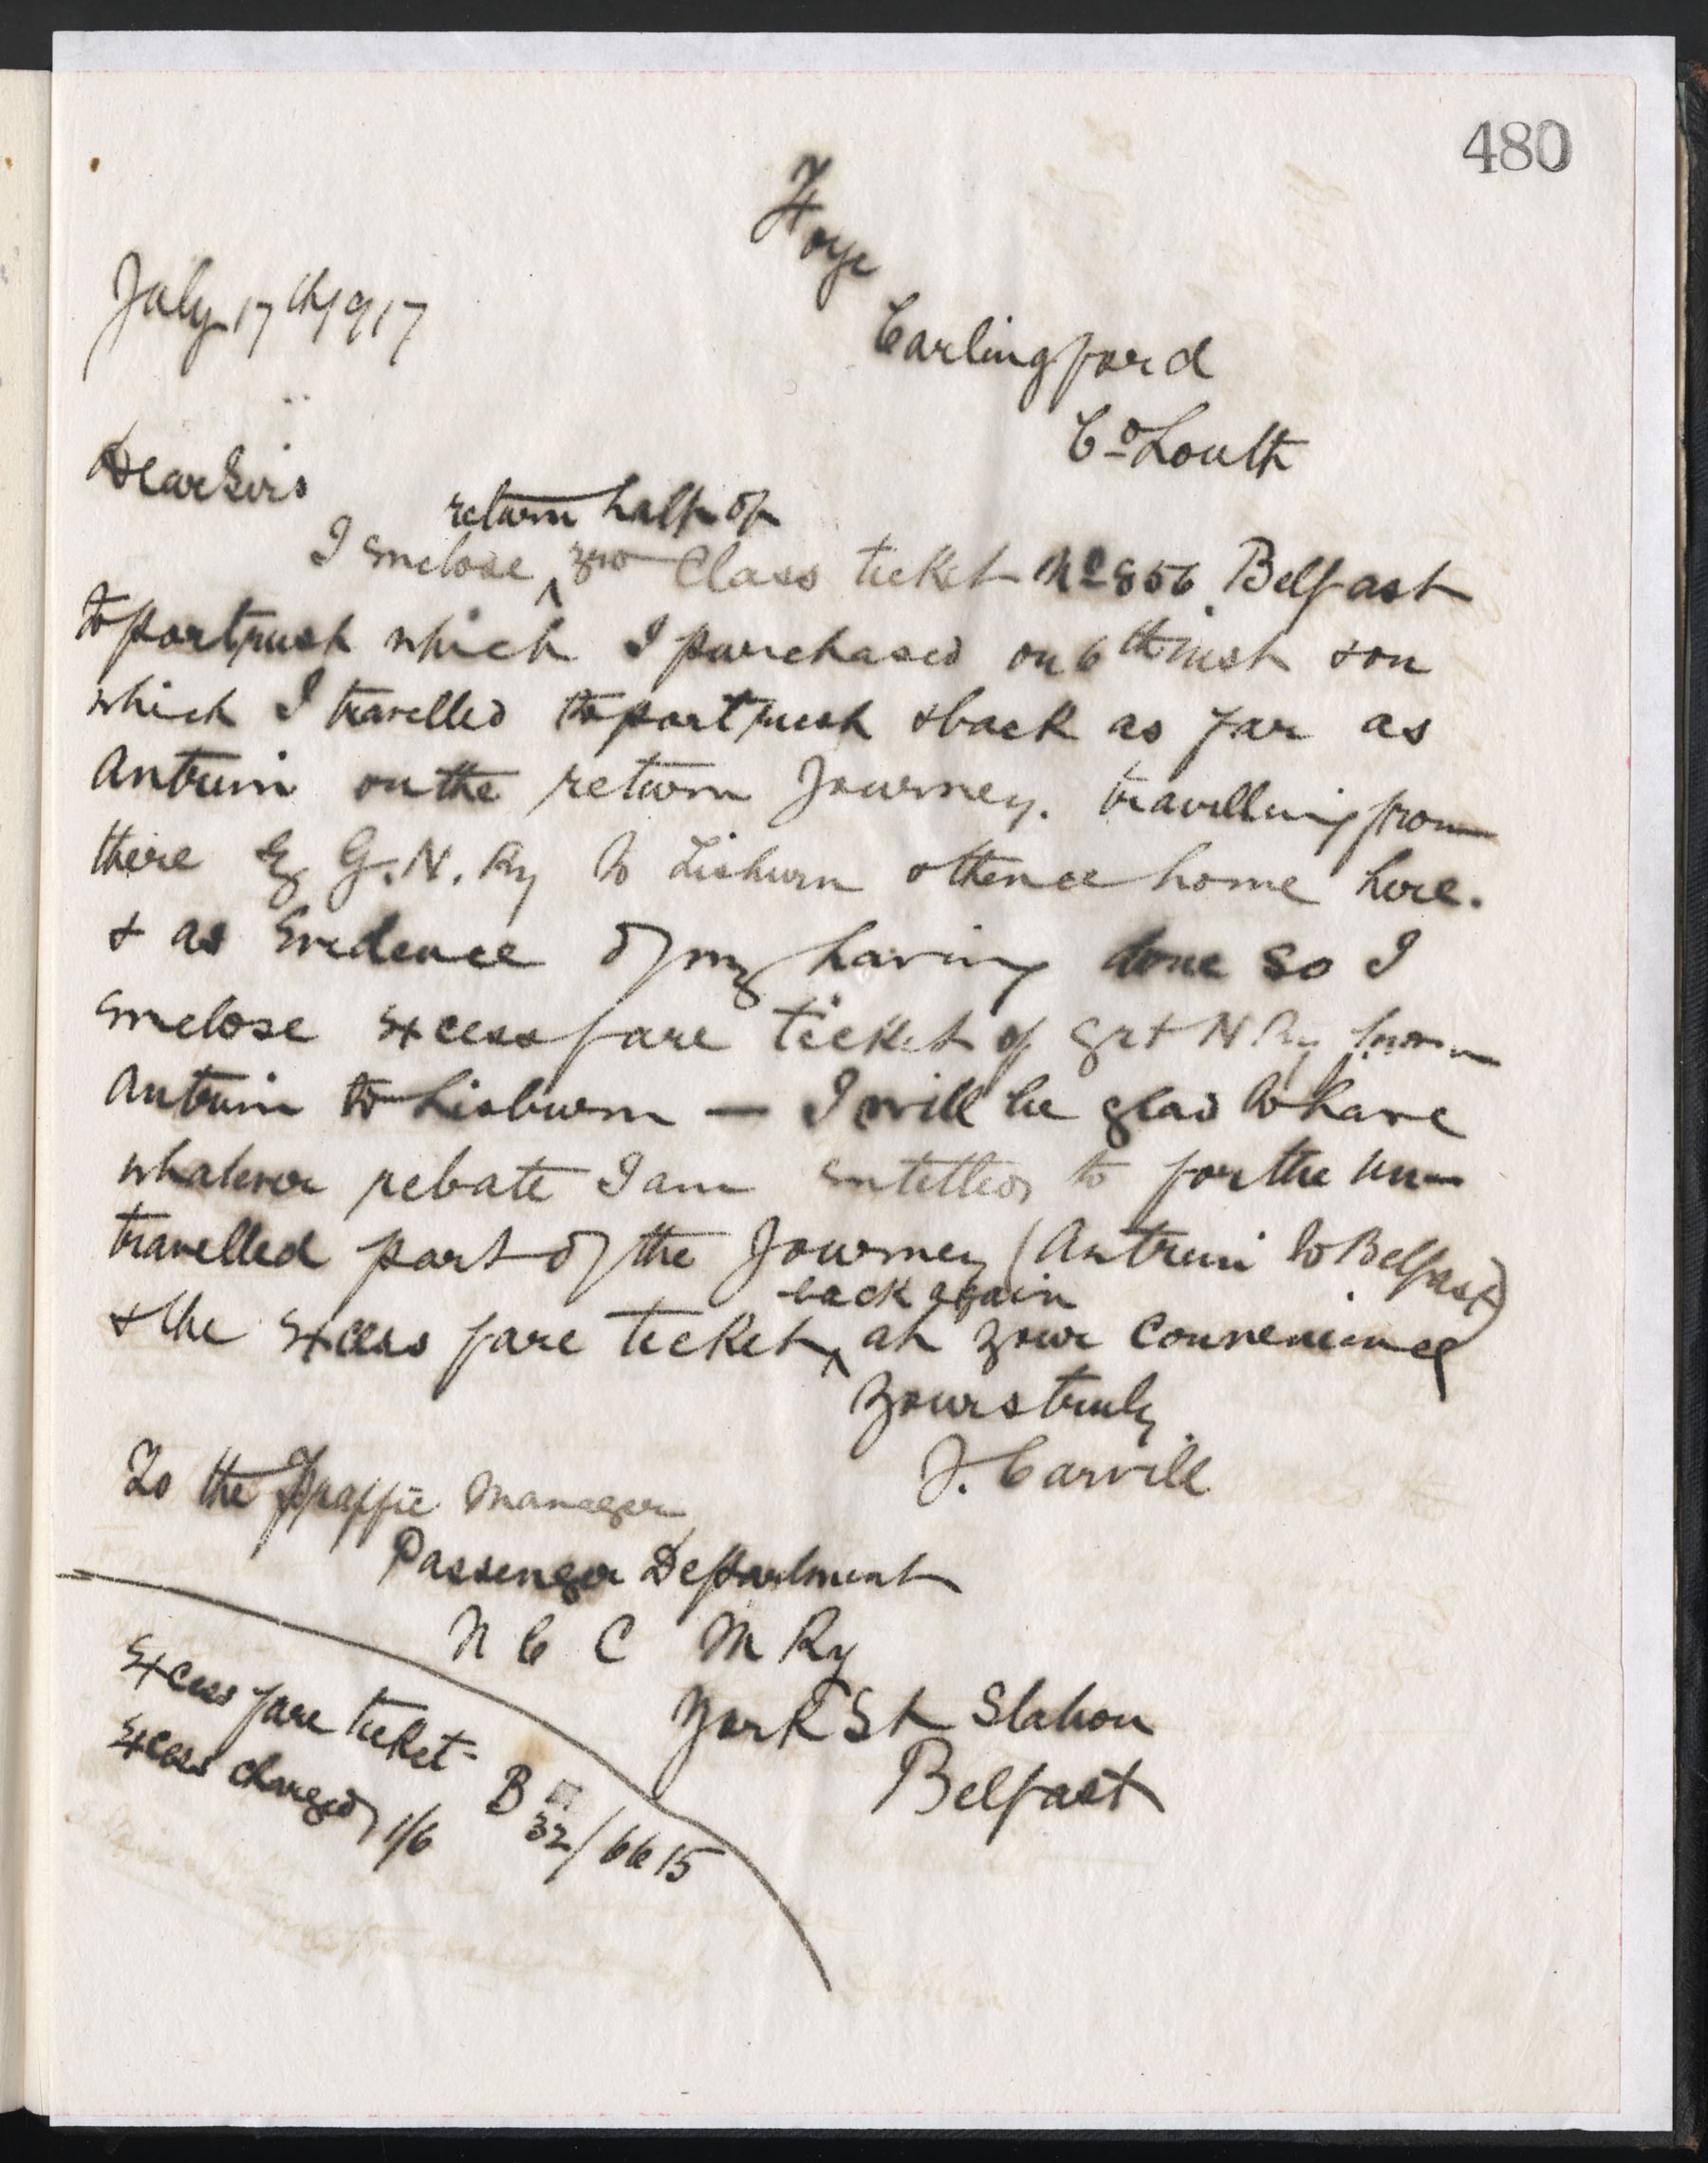 480
Foye
July 17th 1917
Carlingford
Co Louth
Dear Sirs
return half of
I enclose 3rd Class ticket No 856 Belfast
to portrush which I purchased on 6th inst & on
which I travelled to portrush & back as far as
Antrim on the return Journey. travelling from
there by G. N. Ry to Lisburn & thence home here.
& as Evidence of my having done so I
enclose Excess fare ticket of Grt N Ry from
Antrim to Lisburn — I will be glad to have
whatever rebate I am entitled to for the un-
travelled part of the Journey (Antrim to Belfast)
back again
& the Excess fare ticket at your convenience
Yours truly
J. Carvill
To the Traffic Manager
Passenger Department
N C C M Ry
York St Station
Belfast
Excess fare ticket-
Excess charged 1/6
B 32/6615